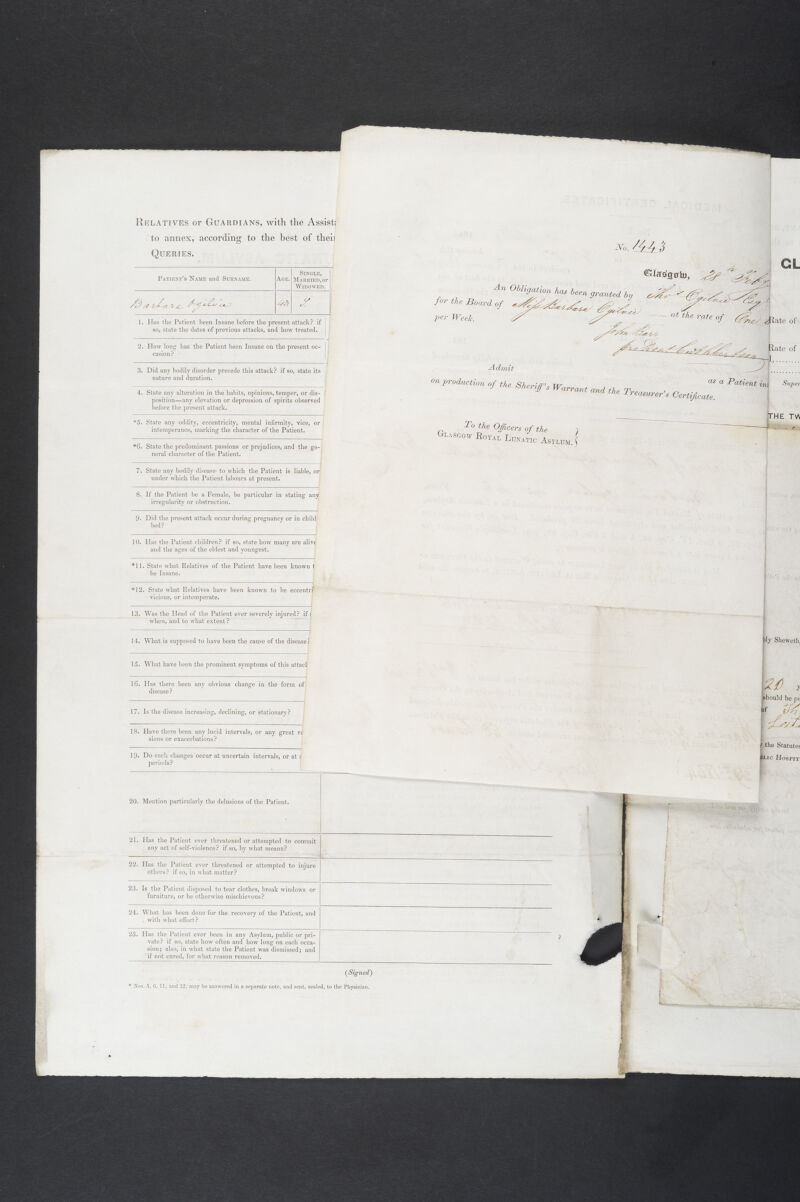 RELATIVES or GUARDIANS, with the Assist
to annex, according to the best of thei
QUERIES.
PATIENT'S NAME AND SURNAME. AGE. SINGLE, MARRIED, or WIDOWED.
Barbara Ogilvie 43 S.
1. Has the Patient been Insane before the present attack? if
so, state the dates of previous attacks, and how treated.
2. How long has the Patient been Insane on the present oc-
casion?
3. Did any bodily disorder precede this attack? if so, state its
nature and duration.
4. State any alteration in the habits, opinions, temper, or dis-
position—any elevation or depression of spirits observed
before the present attack.
*5. State any oddity, eccentricity, mental infirmity, vice, or
intemperance, marking the character of the Patient.
*6. State the predominant passions or prejudices, and the ge-
neral character of the Patient.
7. State any bodily disease to which the Patient is liable, or
under which the Patient labours at present.
8. If the Patient be a Female, be particular in stating any
irregularity or obstruction.
9. Did the present attack occur during pregnancy or in child
bed?
10. Has the Patient children? if so, state how many are alive
and the ages of the oldest and youngest.
*11. State what Relatives of the Patient have been known t
be Insane.
*12. State what Relatives have been known to be eccentri
vicious, or intemperate.
13. Was the Head of the Patient ever severely injured? if
when, and to what extent?
14. What is supposed to have been the cause of the disease?
15. What have been the prominent symptoms of this attack
16. Has there been any obvious change in the form of
disease?
17. Is the disease increasing, declining, or stationary?
18. Have there been any lucid intervals, or any great re
sions or exacerbations?
19. Do such changes occur at uncertain intervals, or at
periods?
20. Mention particularly the delusions of the Patient.
21. Has the Patient ever threatened or attempted to commit
any act of self-violence? if so, by what means?
22. Has the Patient ever threatened or attempted to injure
others? if so, in what matter?
23. Is the Patient disposed to tear clothes, break windows or
furniture, or be otherwise mischievous?
24. What has been done for the recovery of the Patient, and
with what effect?
25. Has the Patient ever been in any Asylum, public or pri-
vate? if so, state how often and how long on each occa-
sion; also, in what state the Patient was dismissed; and
if not cured, for what reason removed.
(Signed)
* Nos. 5, 6, 11, and 12, may be answered in a separate note, and sent, sealed, to the Physician.
No. 1443
Glasgow, 28th Feby
An Obligation has been granted by Thos Ogilvie Esq
for the Board of Miss Barbara Ogilvie at the rate of One
per Week.
John
Admit as a Patient in
on production of the Sheriff's Warrant and the Treasurer's Certificate.
To the Officers of the
GLASGOW ROYAL LUNATIC ASYLUM.
GL
Rate of
Rate of
Super
THE TW
bly Sheweth,
20
should be p
of
the Statutes
LIC HOSPIT